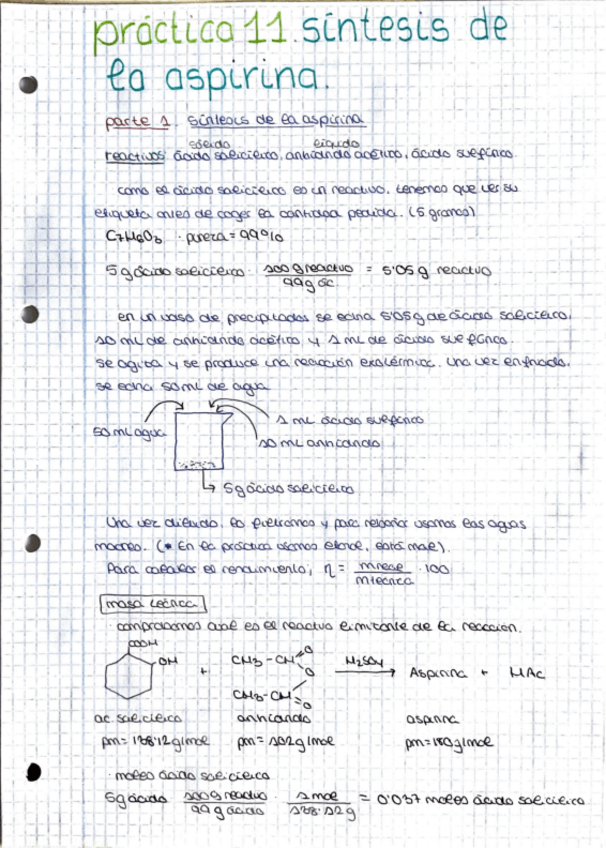 práctica 11. síntesis de
la aspirina.
parte 1. síntesis de la aspirina
sólido líquido
reactivos: ácido salicílico, anhídrido acético, ácido sulfúrico
como el ácido salicílico es un reactivo, tenemos que ver su
etiqueta antes de coger la cantidad pedida. (5 gramos)
C7H6O3 · pureza = 99%
5 g ácido salicílico · 100 g reactivo / 99 g ác = 5'05 g reactivo
en un vaso de precipitados se echa 5'05 g de ácido salicílico,
10 mL de anhídrido acético y 1 mL de ácido sulfúrico.
se agita y se produce una reacción exotérmica. Una vez enfriado,
se echa 50 mL de agua
50 mL agua
1 mL ácido sulfúrico
10 mL anhídrido
5 g ácido salicílico
Una vez diluido, lo filtramos y para rebañar usamos las aguas
madres. (* En la práctica usamos etanol, está mal).
Para calcular el rendimiento; η = mreal / mteórica · 100
masa teórica
· comprobamos cual es el reactivo limitante de la reacción.
COOH
OH + CH3-CH O O H2SO4 Aspirina + HAc
CH3-CH O
ac salicílico anhídrido aspirina
pm = 138'12 g/mol pm = 102 g/mol pm = 180 g/mol
· moles ácido salicílico
5 g ácido 100 g reactivo / 99 g ácido · 1 mol / 138'12 g = 0'037 moles ácido salicílico